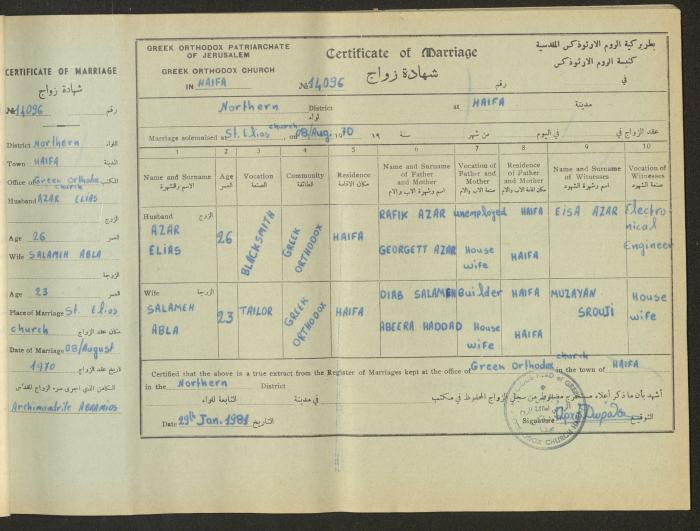 CERTIFICATE OF MARRIAGE
شهادة زواج
№ 14096 رقم
District Northern اللواء
Town HAIFA المدينة
Office of Greek Orthodox church المكتب
Husband AZAR ELIAS
الزوج
Age 26 العمر
Wife SALAMEH ABLA
الزوجة
Age 23 العمر
Place of Marriage St. Elios
church مكان عقد الزواج
Date of Marriage 08/August
1970 تاريخ عقد الزواج
الكاهن الذي اجرى سر الزواج المقدس
Archimandrite ABRAMIOS
GREEK ORTHODOX PATRIARCHATE
OF JERUSALEM
GREEK ORTHODOX CHURCH
IN HAIFA
Certificate of Marriage
شهادة زواج
№ 14096 رقم
بطريركية الروم الارثوذكس المقدسية
كنيسة الروم الارثوذكس
في
Northern District لواء at HAIFA مدينة
Marriage solemnised at St. Elios church, on 08/Aug. 1970 19 سنة من شهر في اليوم عقد الزواج في
1 2 3 4 5 6 7 8 9 10
Name and Surname الاسم والشهرة
Age العمر
Vocation الصنعة
Community الطائفة
Residence مكان الاقامة
Name and Surname of Father and Mother اسم وشهرة الاب والام
Vocation of Father and Mother صنعة الاب والام
Residence of Father and Mother مكان اقامة الاب والام
Name and Surname of Witnesses اسم وشهرة الشهود
Vocation of Witnesses صنعة الشهود
Husband الزوج
AZAR ELIAS
26
BLACKSMITH
GREEK ORTHODOX
HAIFA
RAFIK AZAR unemployed HAIFA
GEORGETT AZAR House wife HAIFA
EISA AZAR
Electronical Engineer
Wife الزوجة
SALAMEH ABLA
23
TAILOR
GREEK ORTHODOX
HAIFA
DIAB SALAMEH Builder HAIFA
ABEERA HADDAD House wife HAIFA
MUZAYAN SROUJI
House wife
Certified that the above is a true extract from the Register of Marriages kept at the office of Greek Orthodox church in the town of HAIFA
in the Northern District
أشهد بأن ما ذكر أعلاه مستخرج مضبوط من سجل الزواج المحفوظ في مكتب
في مدينة التابعة للواء
Date 29th Jan. 1981 التاريخ
Signature التوقيع